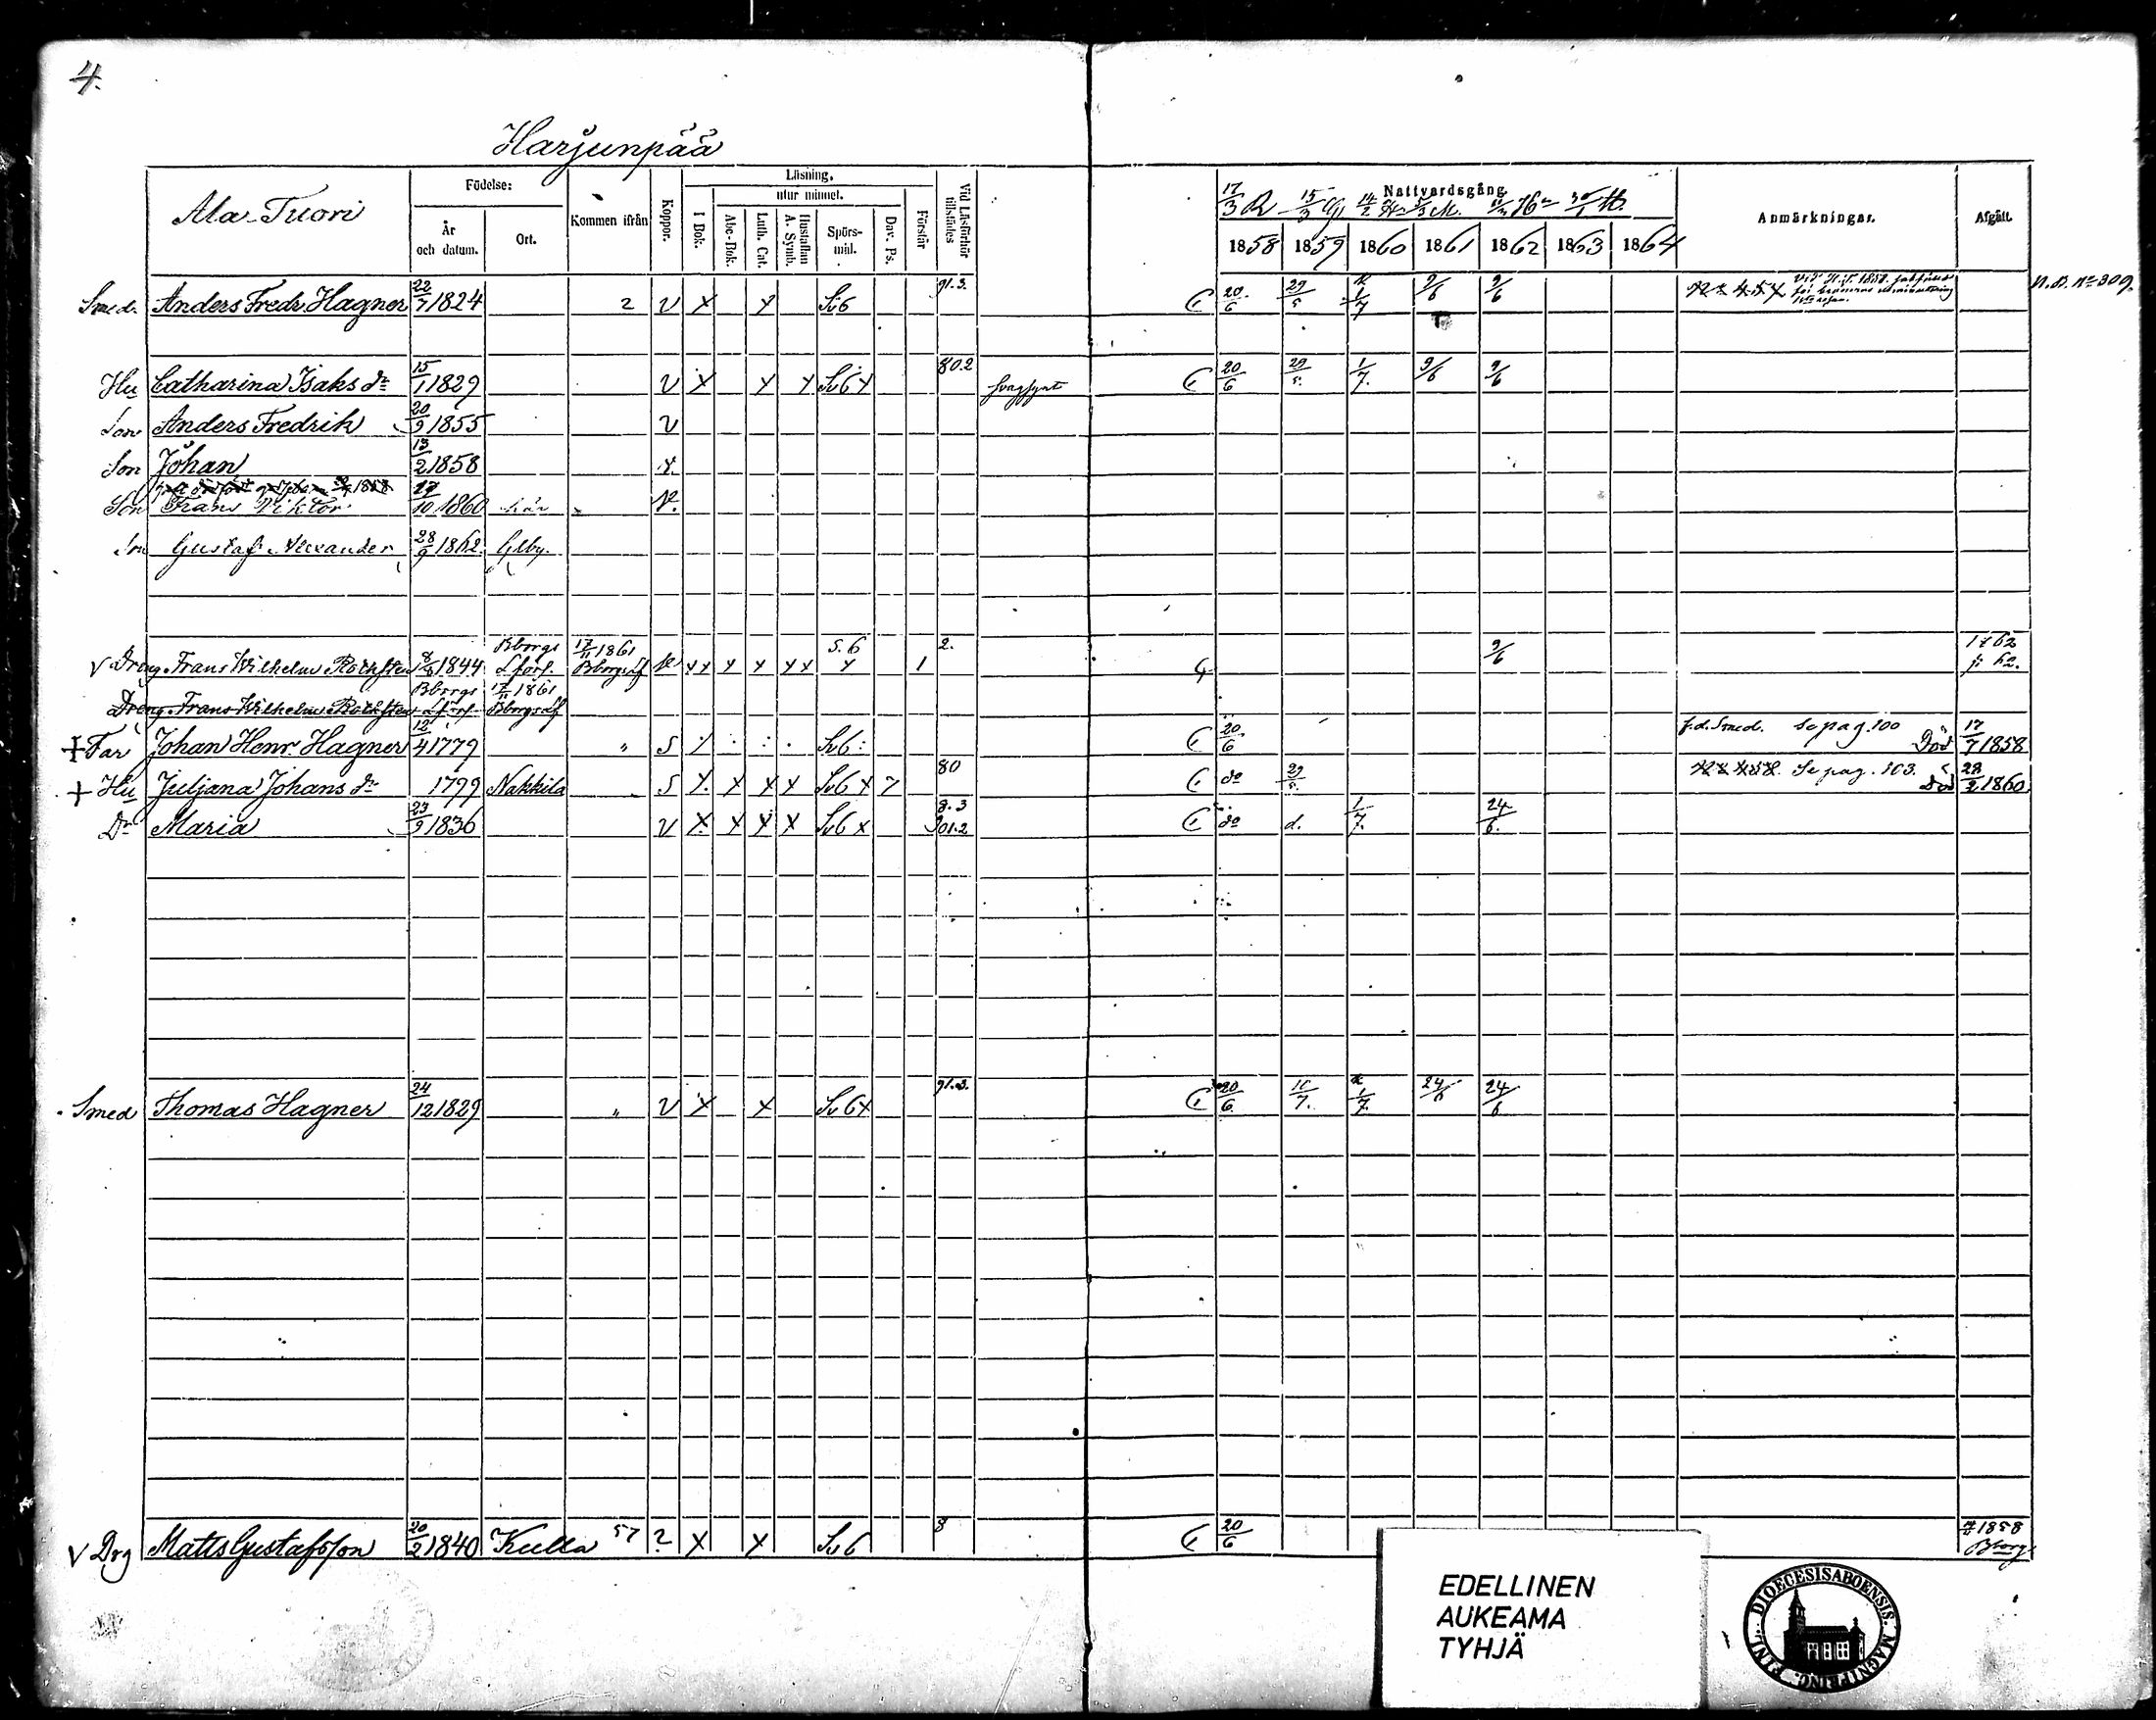 4.
Harjunpää
Ala-Tuori
Födelse:
År och datum.
Ort.
Kommen ifrån
Koppor.
Läsning.
I Bok.
utur minnet.
Abc-Bok.
Luth. Cat.
Hustaflan A. Symb.
Spörs-mål.
Dav. Ps.
Förstår
Vid Läsförhör tillstädes
Nattvardsgång.
17/3 R 15/3
1858 1859 1860 1861 1862 1863 1864
Anmärkningar.
Afgått.
Smed. Anders Fredr. Hagner 22/7 1824 2 V X X Sv 6 91.3. 20/6 29/5 1/7 9/6 9/6 N.B. No 309.
Hu Catharina Isaks dr 15/1 1829 V X X X Sv 6 X 80.2 svagsynt 20/6 29/5 1/7. 9/6 9/6
Son Anders Fredrik 20/9 1855 V
Son Johan 13/2 1858
Son Frans Viktor 10 1860 här
Son Gustaf Alexander 28/9 1862 Glby.
V Dreng Frans Wilhelm 1844 Bborgs Lförs. 17/11 1861 Bborgs Lf X X X X X X S. 6 X 1 2. 9/6
Dreng Frans Wilhelm Bborgs Lförs 17/11 1861 Bborgs Lf
+ Far Johan Henr. Hagner 12/4 1779 " S Sv 6 20/6 f.d. Smed. Se pag. 100 Död 17/7 1858
+ Hu Juljana Johans dr 1799 Nakkila S X X X X Sv 6 X 7 80 do 29/5 Se pag. 103. Död 28/2 1860
Dr Maria 23/9 1836 V X X X X Sv 6 X 8.3 01.2 do d. 1/7. 24/6.
Smed Thomas Hagner 24/12 1829 " V X X Sv 6 X 91.3. 20/6 10/7. 1/7. 24/6 24/6
V Drg Matts Gustafsson 20/2 1840 Kulla 57 ? X X Sv 6 8 20/6 1858 Bborgs
EDELLINEN
AUKEAMA
TYHJÄ
DIOECESIS ABOENSIS. MAGNI PRINC. FINL.